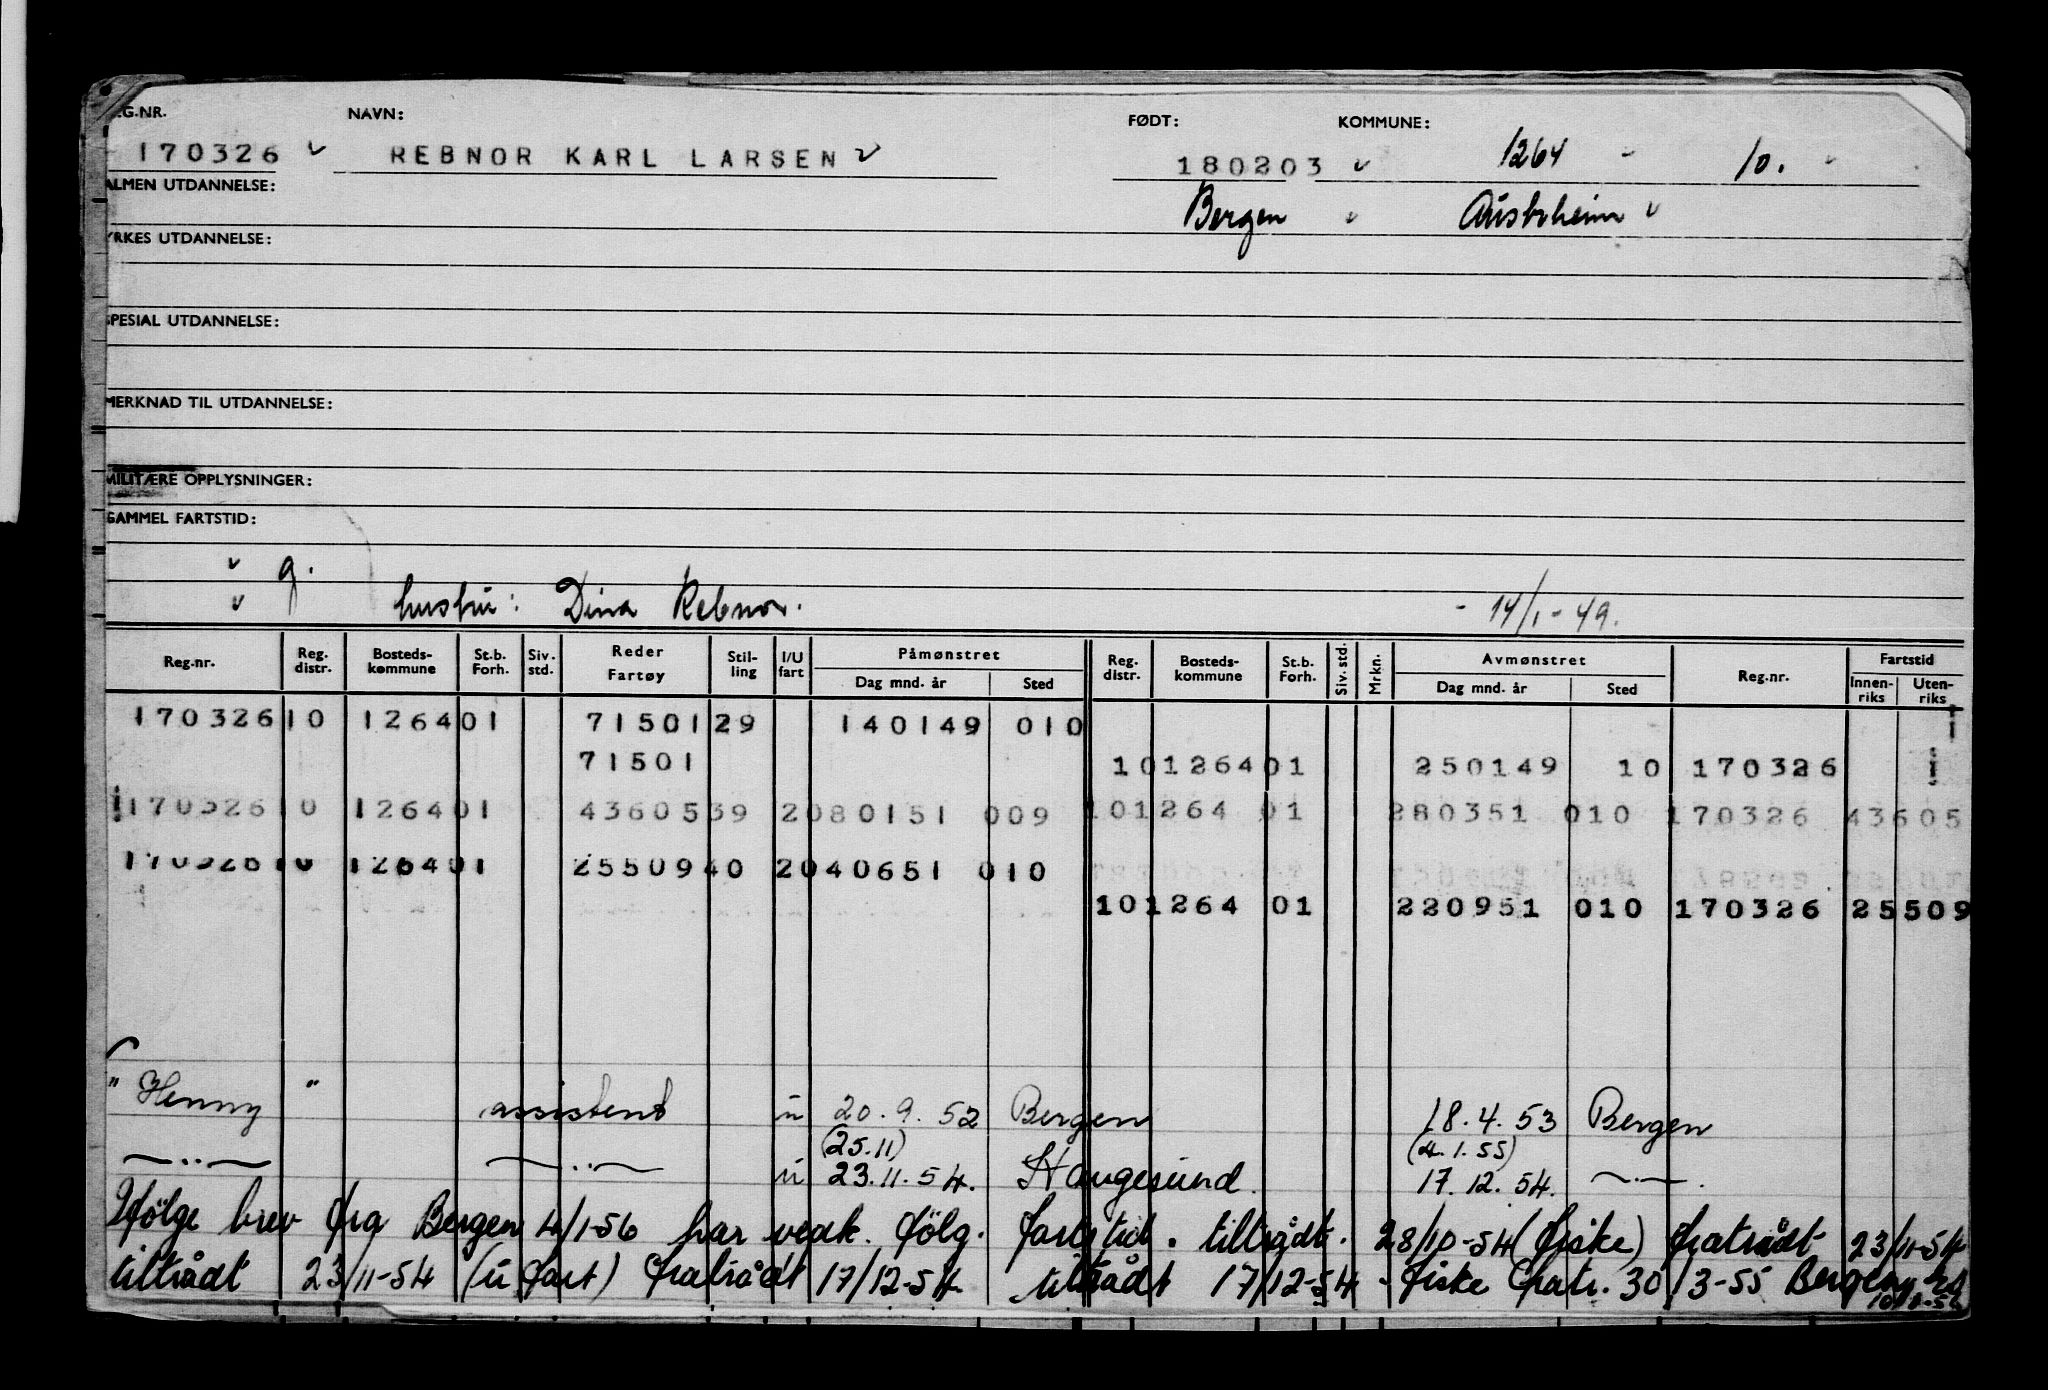 G.NR. NAVN: FØDT: KOMMUNE:
170326 v REBNOR KARL LARSEN v 180203 v 1264 10.
ALMEN UTDANNELSE: Bergen v Austrheim v
YRKES UTDANNELSE:
SPESIAL UTDANNELSE:
MERKNAD TIL UTDANNELSE:
MILITÆRE OPPLYSNINGER:
GAMMEL FARTSTID:
v g.
v hustru: Dina Rebnor. - 14/1-49.
Reg.nr. Reg. distr. Bosteds-kommune St.b. Forh. Siv. std. Reder Fartøy Stil-ling I/U fart Påmønstret Dag mnd. år Sted Reg. distr. Bosteds-kommune St.b. Forh. Siv. std. Mrkn. Avmønstret Dag mnd. år Sted Reg.nr. Fartstid Innen-riks Uten-riks
170326 10 1264 01 71501 29 140149 010
71501 10 1264 01 250149 10 170326
170326 10 1264 01 43605 39 2 080151 009 10 1264 01 280351 010 170326 43605
170326 10 1264 01 25509 40 2 040651 010
10 1264 01 220951 010 170326 25509
" Henny " assistent u 20.9.52 Bergen 18.4.53 Bergen
(25.11) (4.1.55)
—..— —..— u 23.11.54. Haugesund. 17.12.54. —..—.
Ifølge brev fra Bergen 4/1-56 har vedk. følg. fartstid. tiltrådt. 28/10-54 (fiske) fratrådt 23/11-54
tiltrådt 23/11-54 (u fart) fratrådt 17/12-54. tiltrådt 17/12-54 - fiske fratr. 30/3-55 Bergen